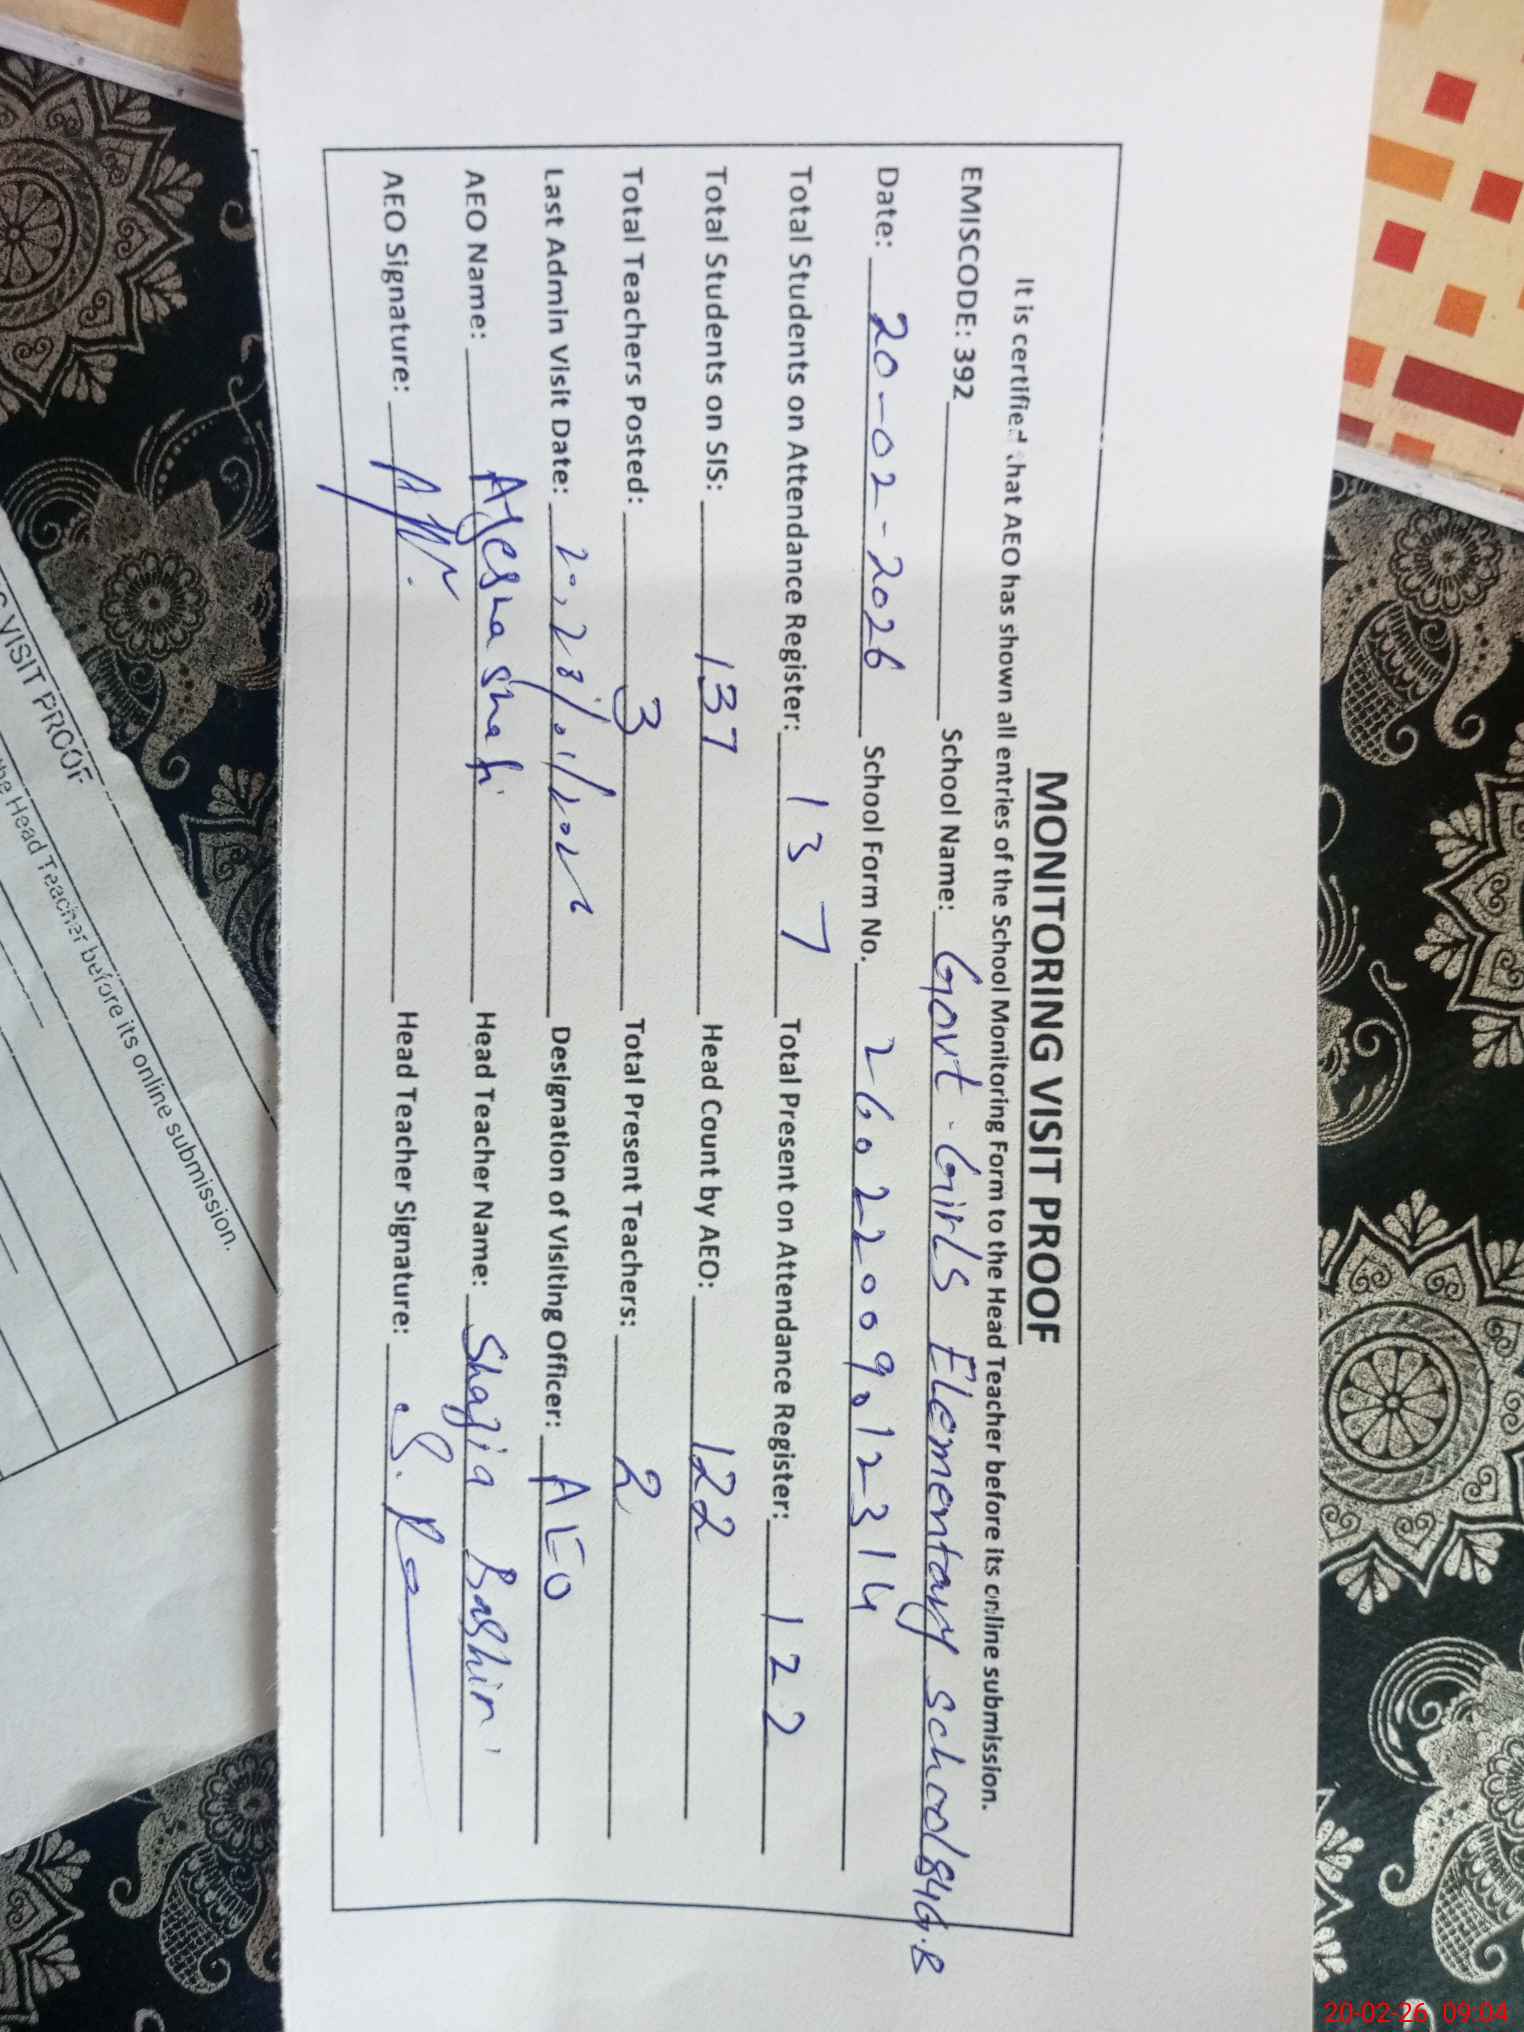 MONITORING VISIT PROOF
It is certified that AEO has shown all entries of the School Monitoring Form to the Head Teacher before its online submission.
EMISCODE: 392 School Name: Govt. Girls Elementary school 84G.B
Date: 20-02-2026 School Form No. 26022009012314
Total Students on Attendance Register: 137 Total Present on Attendance Register: 122
Total Students on SIS: 137 Head Count by AEO: 122
Total Teachers Posted: 3 Total Present Teachers: 2
Last Admin Visit Date: 20, 28/01/2026 Designation of Visiting Officer: AEO
AEO Name: Ayesha Shafi Head Teacher Name: Shazia Bashir
AEO Signature: Head Teacher Signature:
VISIT PROOF
the Head Teacher before its online submission.
20-02-26 09:04